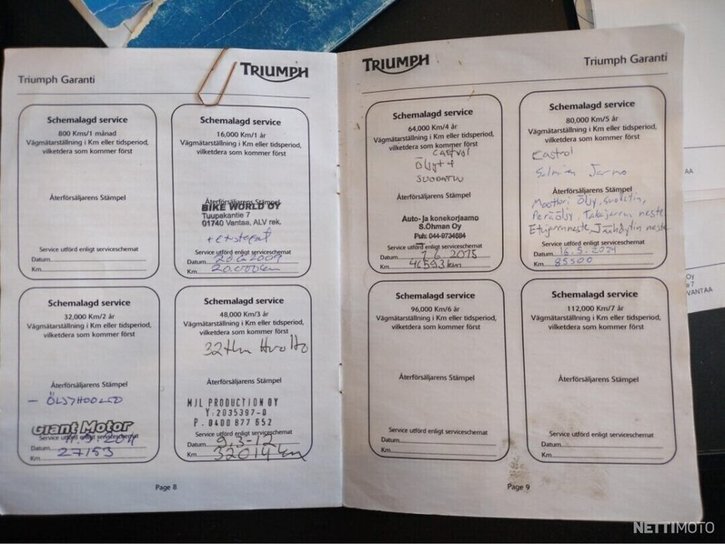 Triumph Garanti
TRIUMPH
Schemalagd service
800 Km/1 månad
Vägmätarställning i Km eller tidsperiod,
vilketdera som kommer först
Återförsäljarens Stämpel
Service utförd enligt serviceschemat
Datum
Km
Schemalagd service
16,000 Km/1 år
Vägmätarställning i Km eller tidsperiod,
vilketdera som kommer först
Återförsäljarens Stämpel
BIKE WORLD OY
Tuupakantie 7
01740 Vantaa, ALV rek.
Service utförd enligt serviceschemat
Datum
Km 20.000km
Schemalagd service
32,000 Km/2 år
Vägmätarställning i Km eller tidsperiod,
vilketdera som kommer först
Återförsäljarens Stämpel
Giant Motor
Service utförd enligt serviceschemat
Datum
Km 27153
Schemalagd service
48,000 Km/3 år
Vägmätarställning i Km eller tidsperiod,
vilketdera som kommer först
32tkm Huolto
Återförsäljarens Stämpel
MJL PRODUCTION OY
Y.2035397-0
P.0400 877 652
Service utförd enligt serviceschemat
Datum 9.3-12
Km 32014km
Page 8
TRIUMPH
Triumph Garanti
Schemalagd service
64,000 Km/4 år
Vägmätarställning i Km eller tidsperiod,
vilketdera som kommer först
Castrol
Öljyt +
SUODATIN
Återförsäljarens Stämpel
Auto- ja konekorjaamo
S.Öhman Oy
Puh: 044-9734884
Service utförd enligt serviceschemat
Datum 7.6.2015
Km 46593km
Schemalagd service
80,000 Km/5 år
Vägmätarställning i Km eller tidsperiod,
vilketdera som kommer först
Castrol
Salmien Jarno
Återförsäljarens Stämpel
Moottori Öljy, suodatin,
Peräöljy, Takajarrun neste
Etujarruneste, Jäähdytin neste
Service utförd enligt serviceschemat
Datum 16.5.2021
Km 85500
Schemalagd service
96,000 Km/6 år
Vägmätarställning i Km eller tidsperiod,
vilketdera som kommer först
Återförsäljarens Stämpel
Service utförd enligt serviceschemat
Datum
Km
Schemalagd service
112,000 Km/7 år
Vägmätarställning i Km eller tidsperiod,
vilketdera som kommer först
Återförsäljarens Stämpel
Service utförd enligt serviceschemat
Datum
Km
Page 9
Oy
a 7
VANTAA
NETTIMOTO